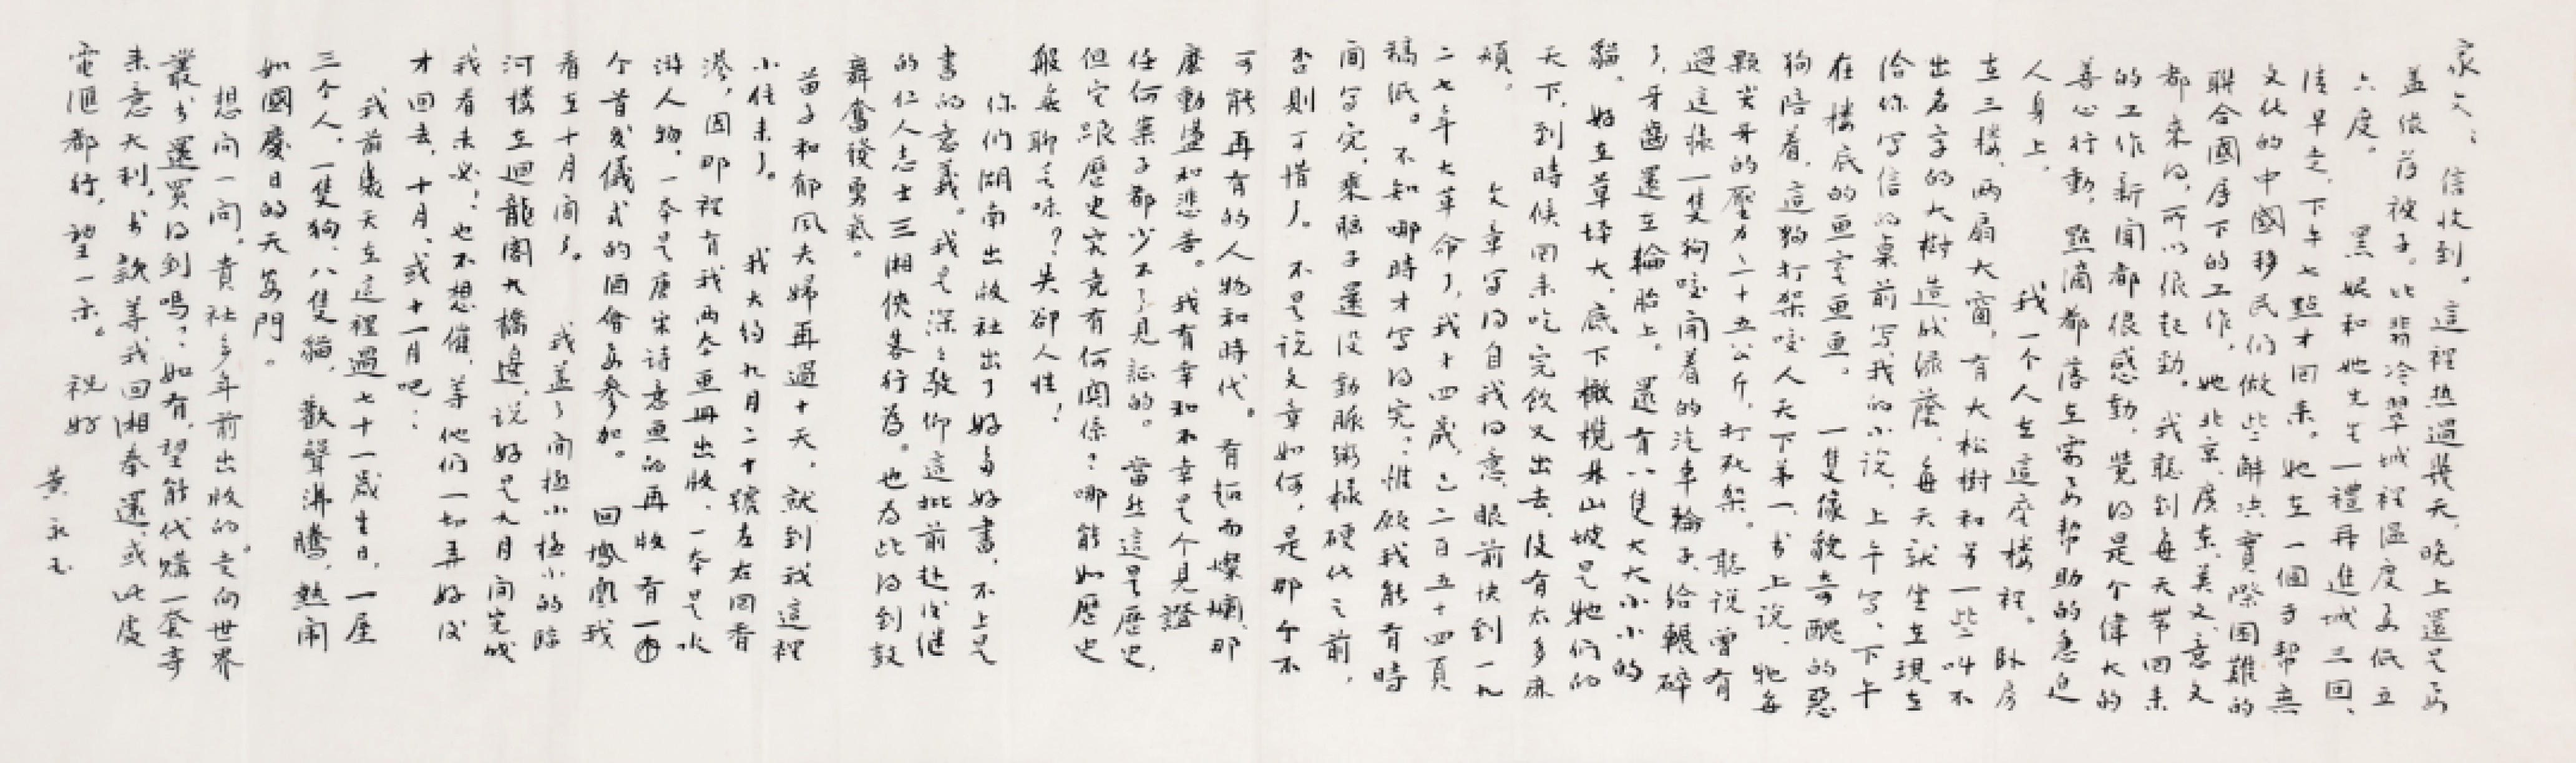 家文：信收到。這裡热過幾天，晚上還是要
蓋依荷被子，比翡冷翠城裡温度要低五
六度。 黑妮和她先生一禮拜進城三回，
清早走，下午七點才回來。她在一個專幫忙
文化的中國移民们做些解決實際困難的
聯合國屬下的工作，她北京、廣东、英文、意文
都來得，所以很起勁。我聽到每天带回来
的工作新聞都很感動，覺得是个偉大的
善心行動，點滴都落在需要帮助的急迫
人身上。 我一个人在這座楼裡。卧房
在三楼，两扇大窗，有大松樹和另一些叫不
出名字的大樹造成绿蔭，每天就坐在現在
给你写信的桌前写我的小说，上午写，下午
在楼底的画室画画。一隻像貌奇醜的惡
狗陪着，這狗打架咬人天下第一，书上说，牠每
顆尖牙的壓力二十五公斤，打死架。聽说曾有
過這樣一隻狗咬開着的汽車輪子，给輾碎
了，牙齒還在輪胎上。還有八隻大大小小的
貓，好在草坪大，底下橄欖林山坡是牠们的
天下，到時候回来吃完飲又出去，沒有太多麻
煩。 文章写得自我得意，眼前快到一九
二七年大革命了，我十四歲，已二百五十四頁
稿紙。不知哪時才写得完；惟願我能有時
間写完，乘脑子還没動脈粥樣硬化之前，
否則可惜了。不是说文章如何，是那个不
可能再有的人物和時代。有趣而燦爛，那
麼動盪和悲苦。我有幸和不幸是个見證
任何案子都少不了見証的。當然這是歷史，
但它跟歷史家竟有何関係？哪能如歷史
般無聊乏味？失卻人性！
你们湖南出版社出了好多好書，不止是
書的意義。我是深深敬仰這批前赴後继
的仁人志士三湘俠客行为。也为此得到鼓
舞奮發勇氣。
苗子和郁风夫婦再過十天，就到我這裡
小住来了。 我大約九月二十號左右回香
港，因那裡有我两本画冊出版，一本是水
滸人物，一本是唐宋诗意画的再版，有一
个首发儀式的酒會要参加。 回鳳凰我
看在十月间了。 我蓋了间極小極小的臨
河楼在迴龍閣大橋邊，说好是九月间完成
我看未必；也不想催，等他们一切弄好後
才回去，十月，或十一月吧；
我前幾天在這裡過七十一歲生日，一屋
三个人，一隻狗、八隻貓，歡聲沸騰，熱鬧
如國慶日的天安門。
想问一问，貴社多年前出版的「走向世界
叢书」還買得到嗎？如有，望能代購一套寄
来意大利，书款等我回湘奉還，或此度
電匯都行，望一示。 祝好
黄永玉